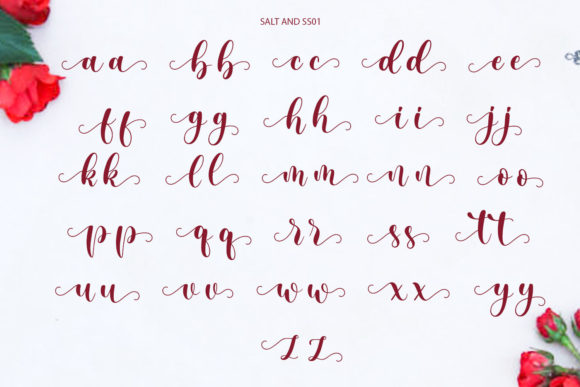 SALT AND SS01
a a b b c c d d e e
f f g g h h i i j j
k k l l m m n n o o
p p q q r r s s t t
u u v v w w x x y y
z z